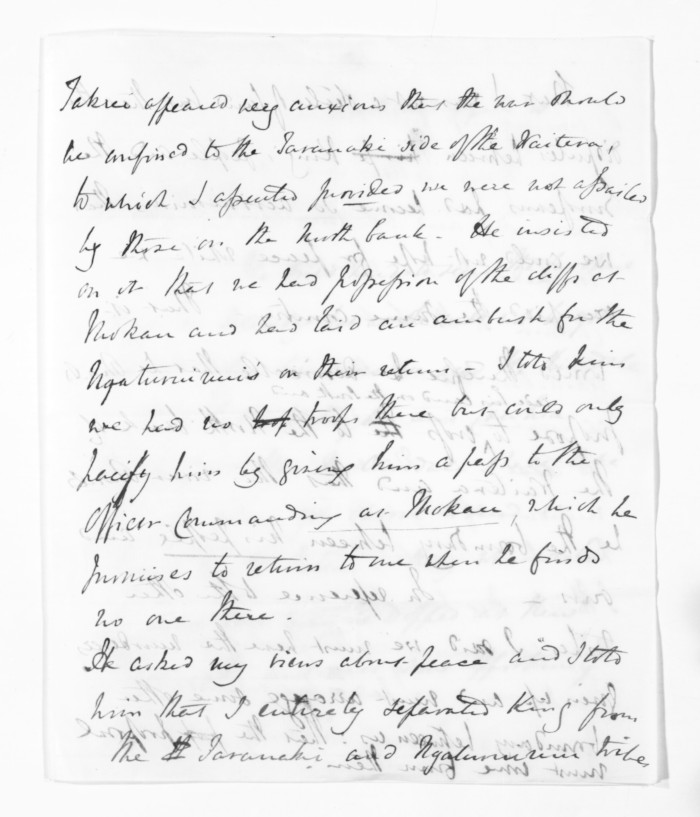 Takrei appeared very anxious that the war should
be confined to the Taranaki side of the Waitera,
to which I assented provided we were not assailed
by those on the North bank - He insisted
on it that we had possession of the cliffs at
Mokau and had laid an ambush for the
Ngaturuimuis on their return - I told him
we had no troops there but could only
pacify him by giving him a pass to the
Officer Commanding at Mokau, which he
promises to return to me when he finds
no one there.
He asked my views about peace and I told
him that I entirely separated King from
the Taranaki and Ngaturuimui tribes